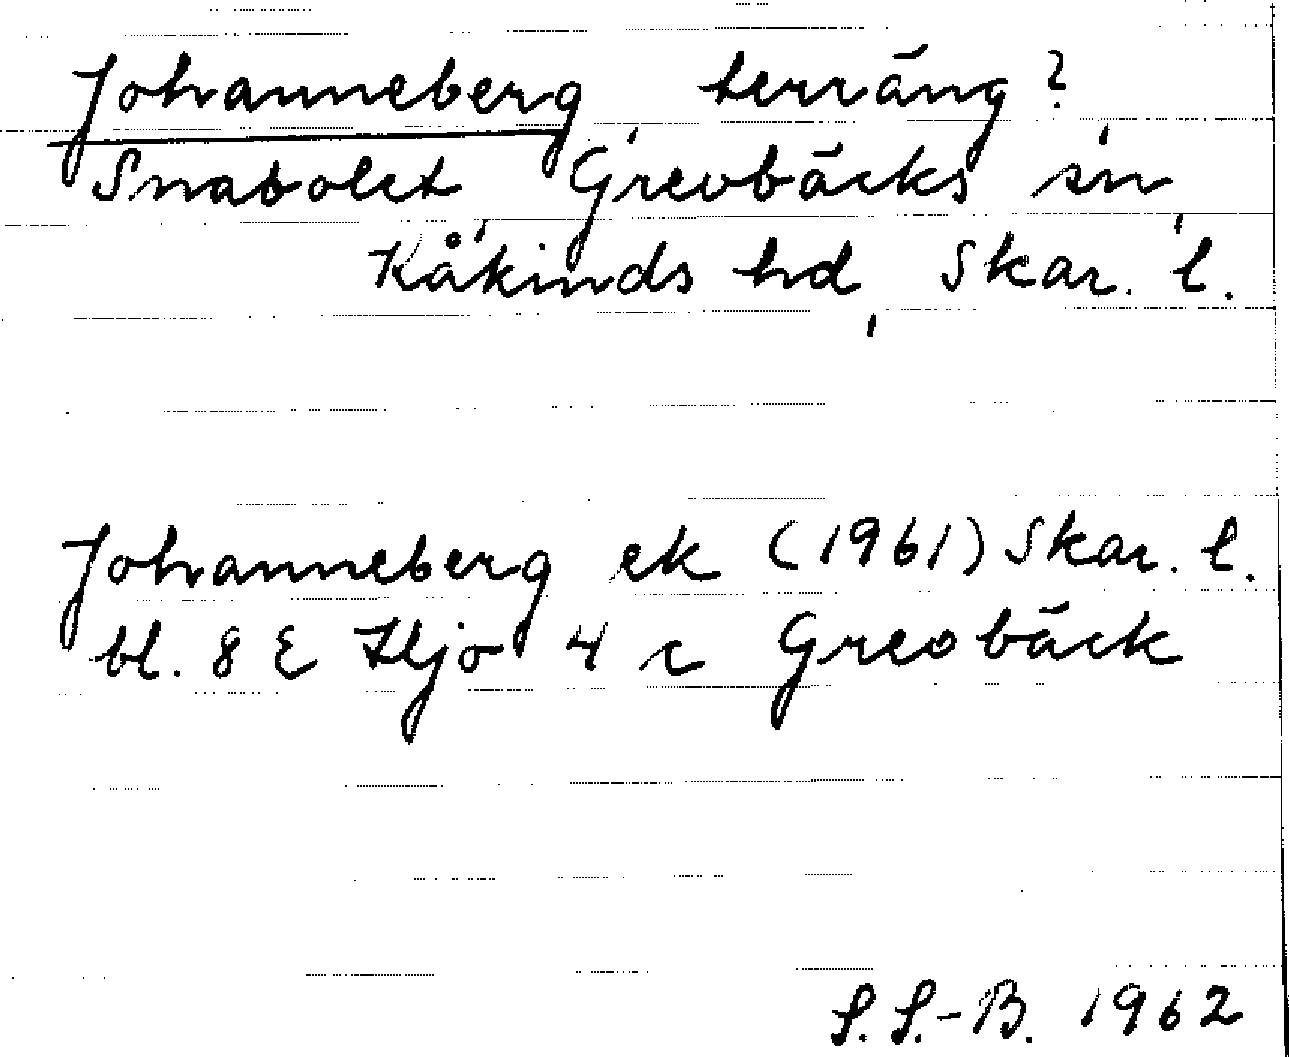 Johanneberg, terräng?
Snabolet, Grevbäcks sn,
Kåkinds hd, Skar. l.
Johanneberg ek (1961) Skar. l.
bl. 8 E Hjo 4 c Grevbäck
S. S.-B. 1962